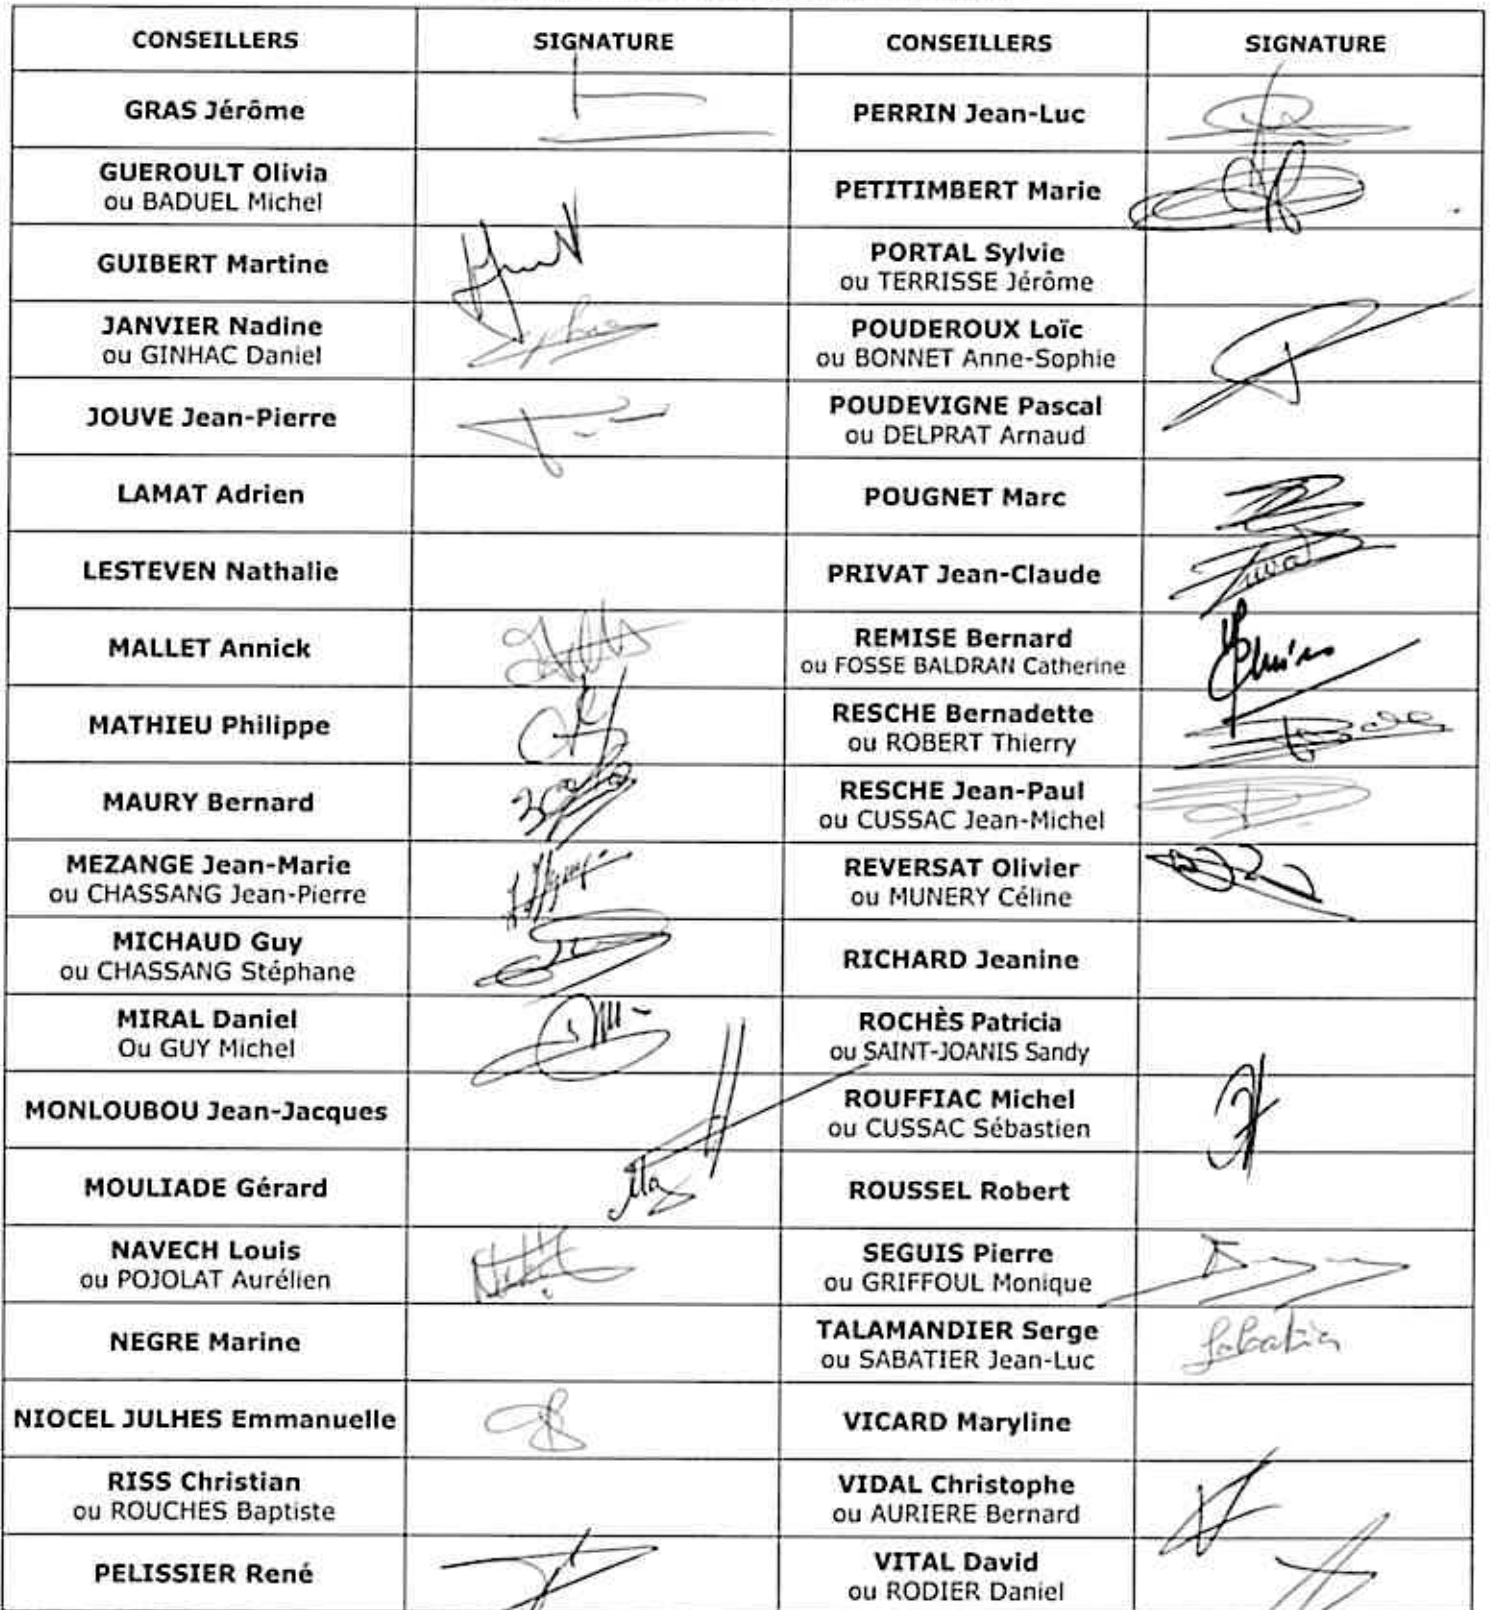 CONSEILLERS SIGNATURE CONSEILLERS SIGNATURE
GRAS Jérôme PERRIN Jean-Luc
GUEROULT Olivia
ou BADUEL Michel PETITIMBERT Marie
GUIBERT Martine PORTAL Sylvie
ou TERRISSE Jérôme
JANVIER Nadine POUDEROUX Loïc
ou GINHAC Daniel ou BONNET Anne-Sophie
JOUVE Jean-Pierre POUDEVIGNE Pascal
ou DELPRAT Arnaud
LAMAT Adrien POUGNET Marc
LESTEVEN Nathalie PRIVAT Jean-Claude
MALLET Annick REMISE Bernard
ou FOSSE BALDRAN Catherine
MATHIEU Philippe RESCHE Bernadette
ou ROBERT Thierry
MAURY Bernard RESCHE Jean-Paul
ou CUSSAC Jean-Michel
MEZANGE Jean-Marie REVERSAT Olivier
ou CHASSANG Jean-Pierre ou MUNERY Céline
MICHAUD Guy
ou CHASSANG Stéphane RICHARD Jeanine
MIRAL Daniel ROCHÈS Patricia
Ou GUY Michel ou SAINT-JOANIS Sandy
MONLOUBOU Jean-Jacques ROUFFIAC Michel
ou CUSSAC Sébastien
MOULIADE Gérard ROUSSEL Robert
NAVECH Louis SEGUIS Pierre
ou POJOLAT Aurélien ou GRIFFOUL Monique
NEGRE Marine TALAMANDIER Serge
ou SABATIER Jean-Luc Sabatier
NIOCEL JULHES Emmanuelle VICARD Maryline
RISS Christian VIDAL Christophe
ou ROUCHES Baptiste ou AURIERE Bernard
PELISSIER René VITAL David
ou RODIER Daniel